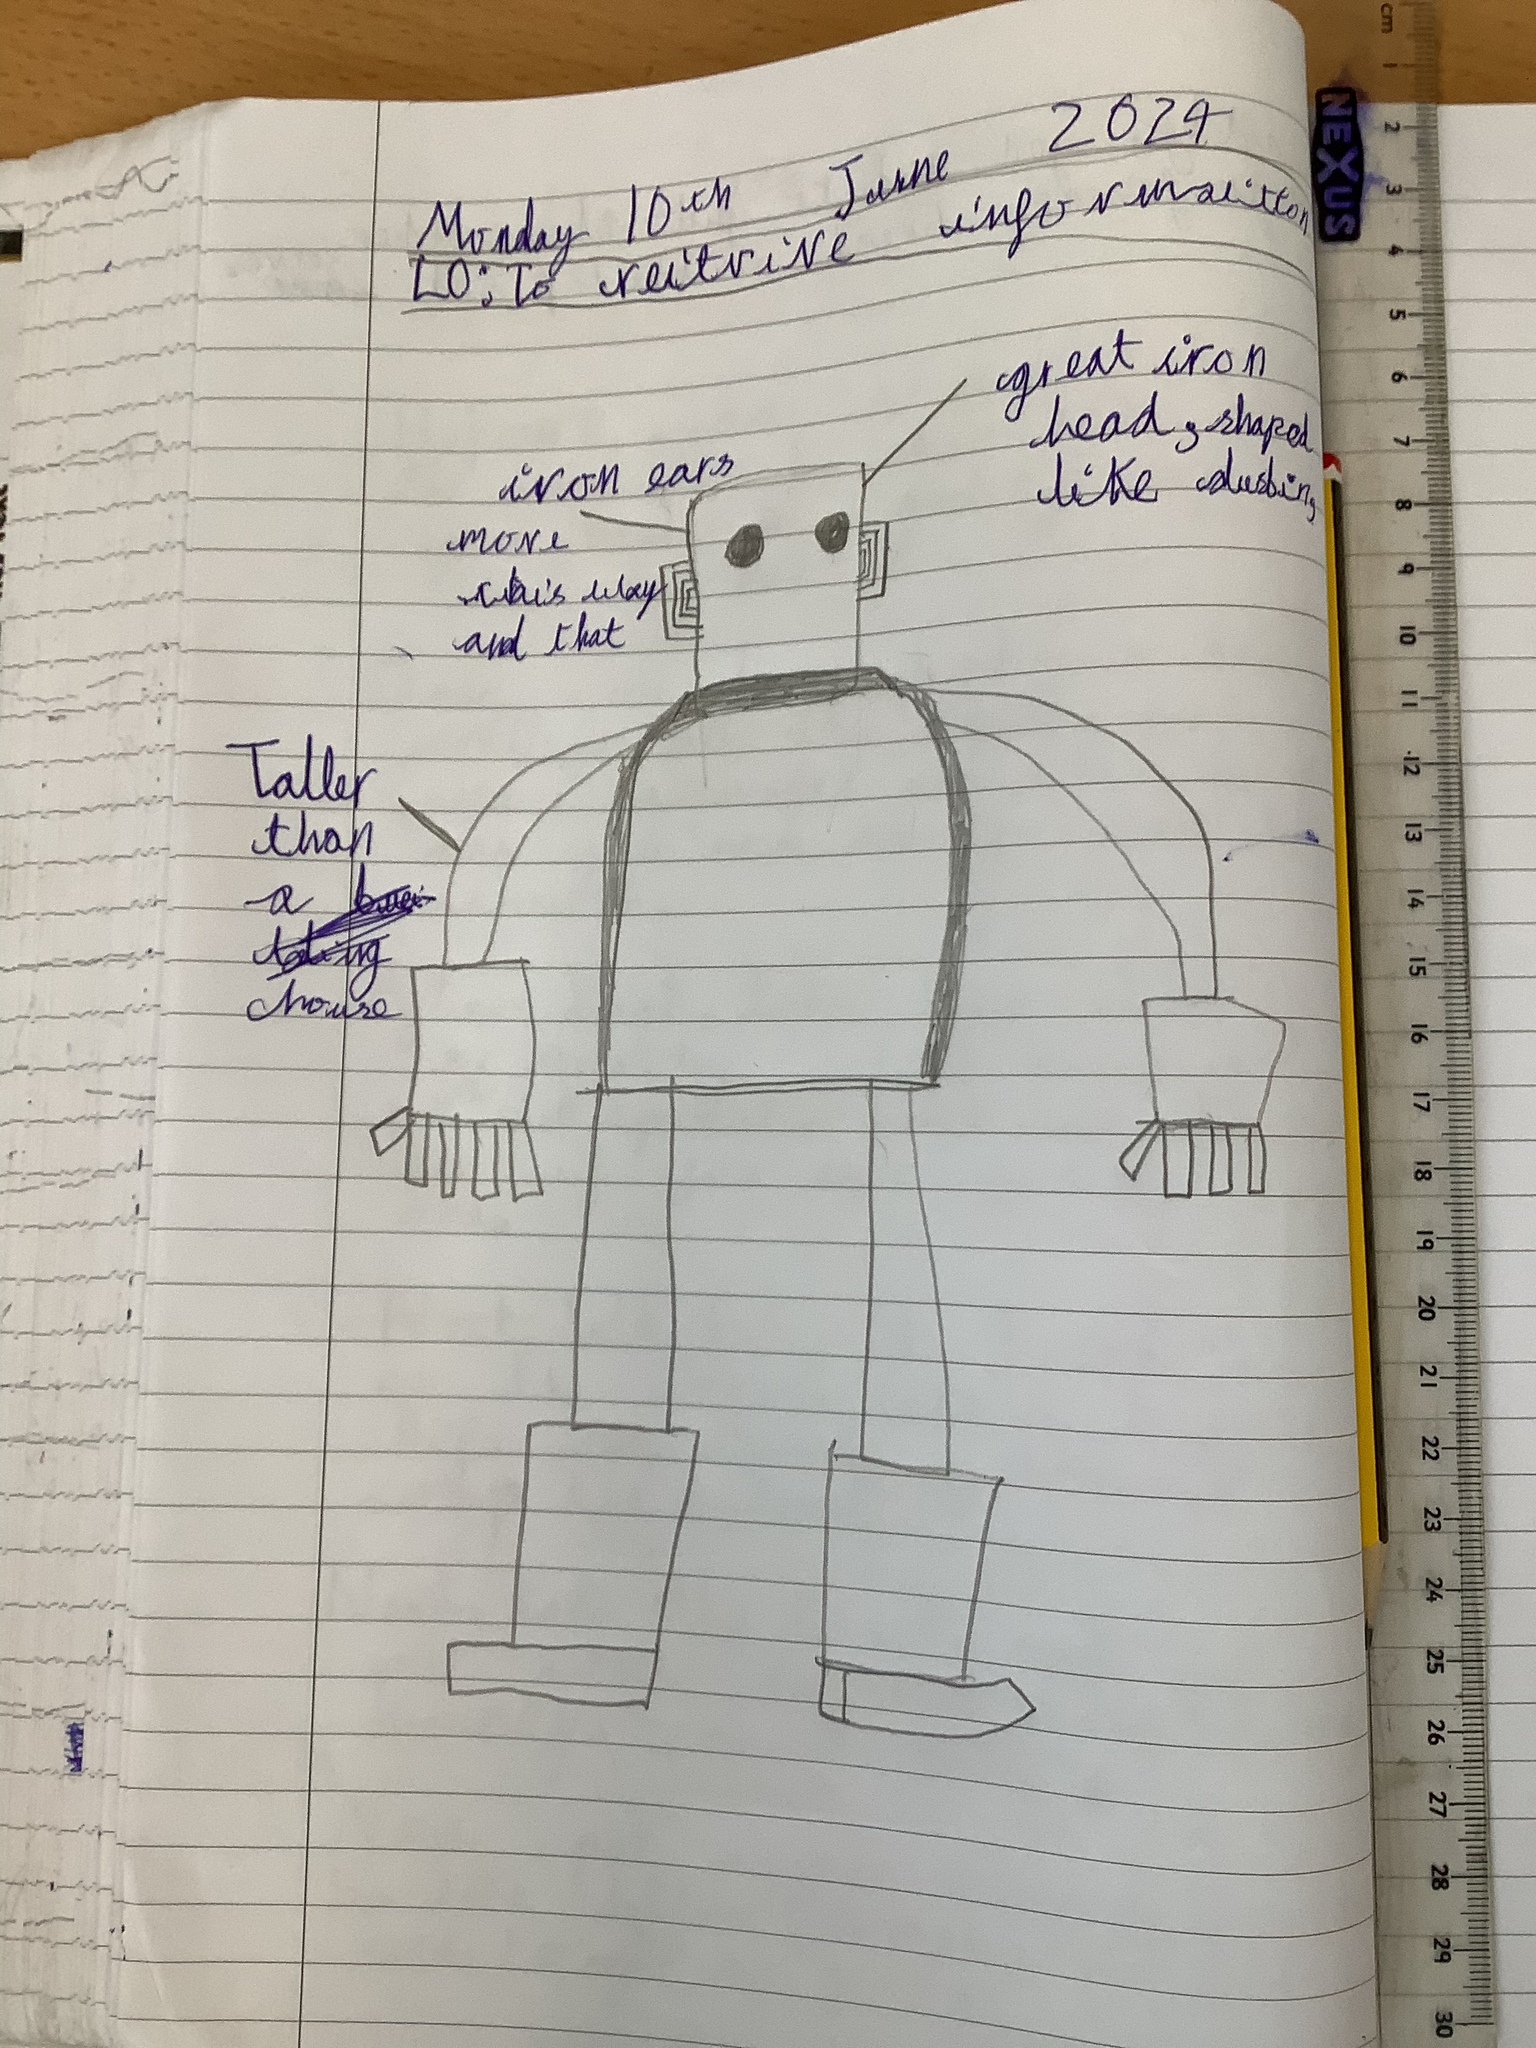 Monday 10th June 2024
LO: To reitrive informaition
great iron
head, shaped
like dusbin,
iron ears
move
this way
and that
Taller
than
a
house
NEXUS
cm
1
2
3
4
5
6
7
8
9
10
11
12
13
14
15
16
17
18
19
20
21
22
23
24
25
26
27
28
29
30